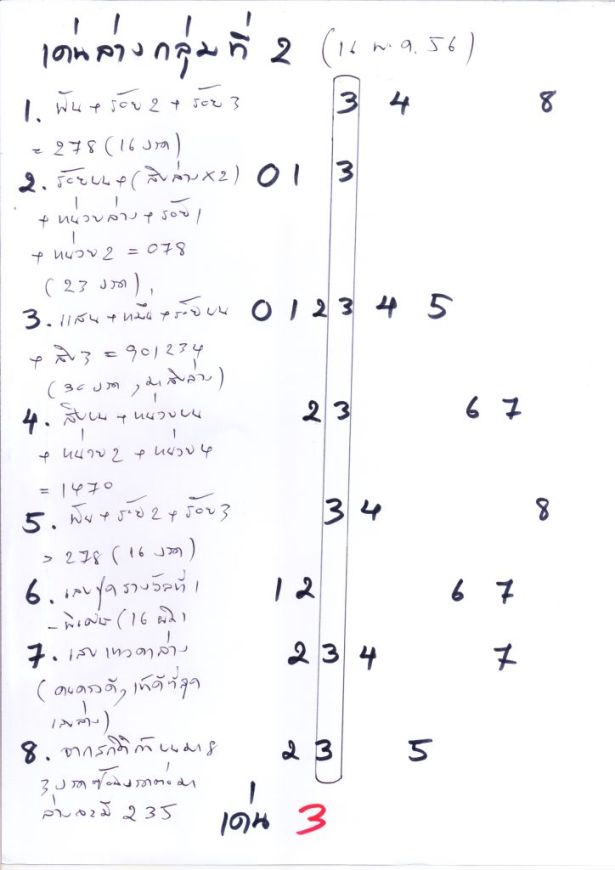 เด่นล่างกลุ่มที่ 2 (16 พ.ค. 56)
1. พัน + ร้อย 2 + ร้อย 3 3 4 8
= 278 (16 งวด)
2. ร้อยบน + (สิบล่าง x 2) 0 1 3
+ หน่วยล่าง + ร้อย 1
+ หน่วย 2 = 078
(23 งวด)
3. แสน + หมื่น + ร้อยบน 0 1 2 3 4 5
+ สิบ 3 = 901234
(30 งวด, มาสิบล่าง)
4. สิบบน + หน่วยบน 2 3 6 7
+ หน่วย 2 + หน่วย 4
= 1470
5. พัน + ร้อย 2 + ร้อย 3 3 4 8
> 278 (16 งวด)
6. เลขชุดรางวัลที่ 1 1 2 6 7
- พิเศษ (16
7. เลขเทวดาล่าง 2 3 4 7
(คนดวงดี,
เลขล่าง)
8. จากสถิติถ้าบนมา 8 2 3 5
3 งวดซ้อนงวดต่อมา
ล่างจะมี 235
เด่น 3